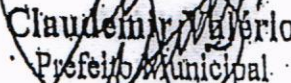 Claudemir Valério
Prefeito Municipal